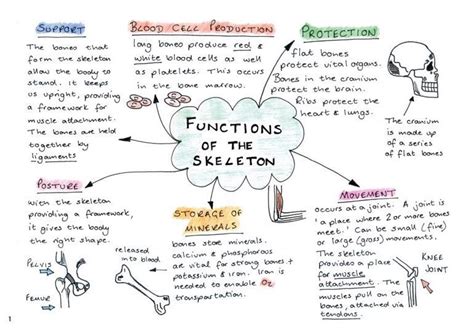 SUPPORT
The bones that
form the skeleton
allow the body to
stand, it keeps
us upright, providing
a framework for
muscle attachment.
The bones are held
together by
ligaments
BLOOD CELL PRODUCTION
long bones produce red &
white blood cells as well
as platelets. This occurs
in the bone marrow.
PROTECTION
flat bones
protect vital organs.
Bones in the cranium
protect the brain.
Ribs protect the
heart & lungs.
The cranium
is made up
of a series
of flat bones
FUNCTIONS
OF THE
SKELETON
POSTURE
With the skeleton
providing a framework,
it gives the body
the right shape.
PELVIS
FEMUR
STORAGE OF
MINERALS
released
into blood
bones store minerals.
calcium & phosphorous
are vital for strong bones +
potassium & iron. Iron is
needed to enable O2
transportation.
MOVEMENT
occurs at a joint. A joint is
'a place where 2 or more bones
meet.' Can be small (fine)
or large (gross) movements.
The skeleton
provides a place
for muscle
attachment. The
muscles pull on the
bones, attached via
tendons.
KNEE
JOINT
1